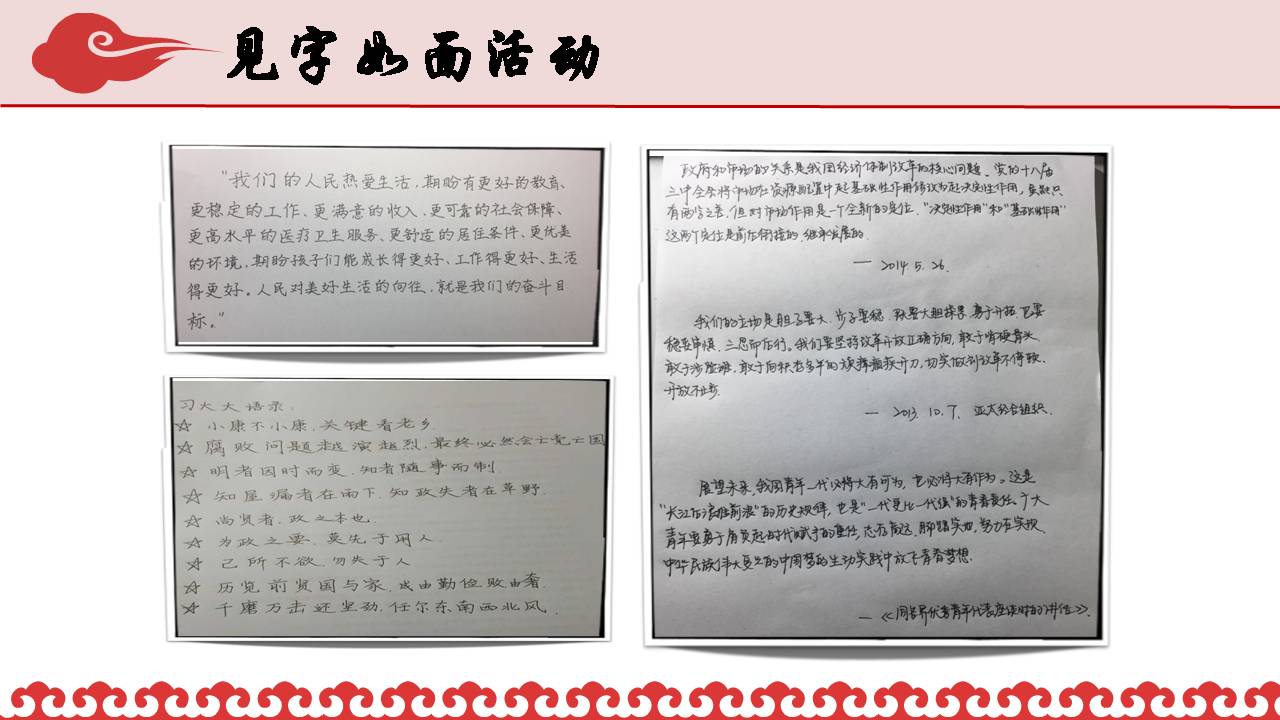 见字如面活动
“我们的人民热爱生活，期盼有更好的教育、
更稳定的工作、更满意的收入、更可靠的社会保障、
更高水平的医疗卫生服务、更舒适的居住条件、更优美
的环境，期盼孩子们能成长得更好、工作得更好、生活
得更好。人民对美好生活的向往，就是我们的奋斗目
标。”
习大大语录：
☆ 小康不小康，关键看老乡.
☆ 腐败问题越演越烈，最终必然会亡党亡国
☆ 明者因时而变，知者随事而制
☆ 知屋漏者在雨下，知政失者在草野.
☆ 尚贤者，政之本也.
☆ 为政之要，莫先于用人.
☆ 己所不欲，勿失于人
☆ 历览前贤国与家，成由勤俭败由奢.
☆ 千磨万击还坚劲，任尔东南西北风.
政府和市场的关系是我国经济体制改革的核心问题。党的十八届
三中全会将市场在资源配置中起基础性作用修改为起决定性作用，虽然只
有两字之差，但对市场作用是一个全新的定位，“决定性作用”和“基础性作用”
这两个定位是前后衔接的、继承发展的.
— 2014. 5. 26.
我们的立场是胆子要大、步子要稳，既要大胆探索、勇于开拓，也要
稳妥审慎、三思而后行。我们要坚持改革开放正确方向，敢于啃硬骨头，
敢于涉险滩，敢于向积老多年的顽瘴痼疾开刀，切实做到改革不停顿、
开放不止步.
— 2013. 10. 7. 亚太经合组织.
展望未来，我国青年一代必将大有可为，也必将大有作为。这是
“长江后浪推前浪”的历史规律，也是“一代更比一代强”的青春责任。广大
青年要勇于肩负起时代赋予的重任，志存高远，脚踏实地，努力在实现
中华民族伟大复兴的中国梦的生动实践中放飞青春梦想.
—《同各界优秀青年代表座谈时的讲话》.